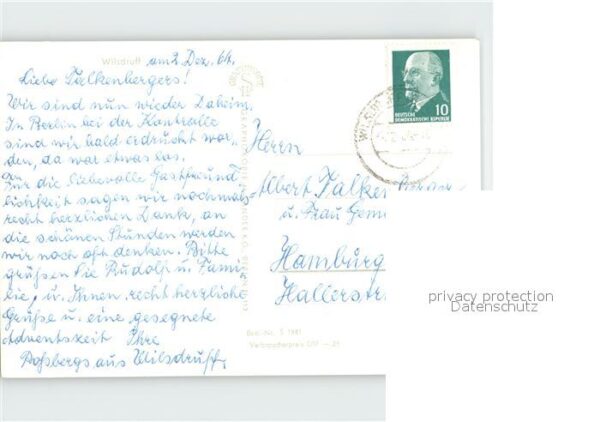 Wilsdruff am 2. Dez. 64.
Liebe Falkenbergers!
Wir sind nun wieder Daheim.
In Berlin bei der Kontrolle
sind wir bald erdruckt wor-
den, da war etwas los.
Für die liebevolle Gastfreund
lichkeit sagen wir nochmals
recht herzlichen Dank, an
die schönen Stunden werden
wir noch oft denken. Bitte
grüßen Sie Rudolf u. Fami-
lie, u. Ihnen recht herzliche
Grüße u. eine gesegnete
Adventszeit Ihre
aus Wilsdruff.
10
DEUTSCHE
DEMOKRATISCHE REPUBLIK
Herrn
Albert Falkenberger
u. Frau Gem
Hamburg
Hallerstr
Best.-Nr. S 1981
Verbraucherpreis DM —.25
privacy protection
Datenschutz